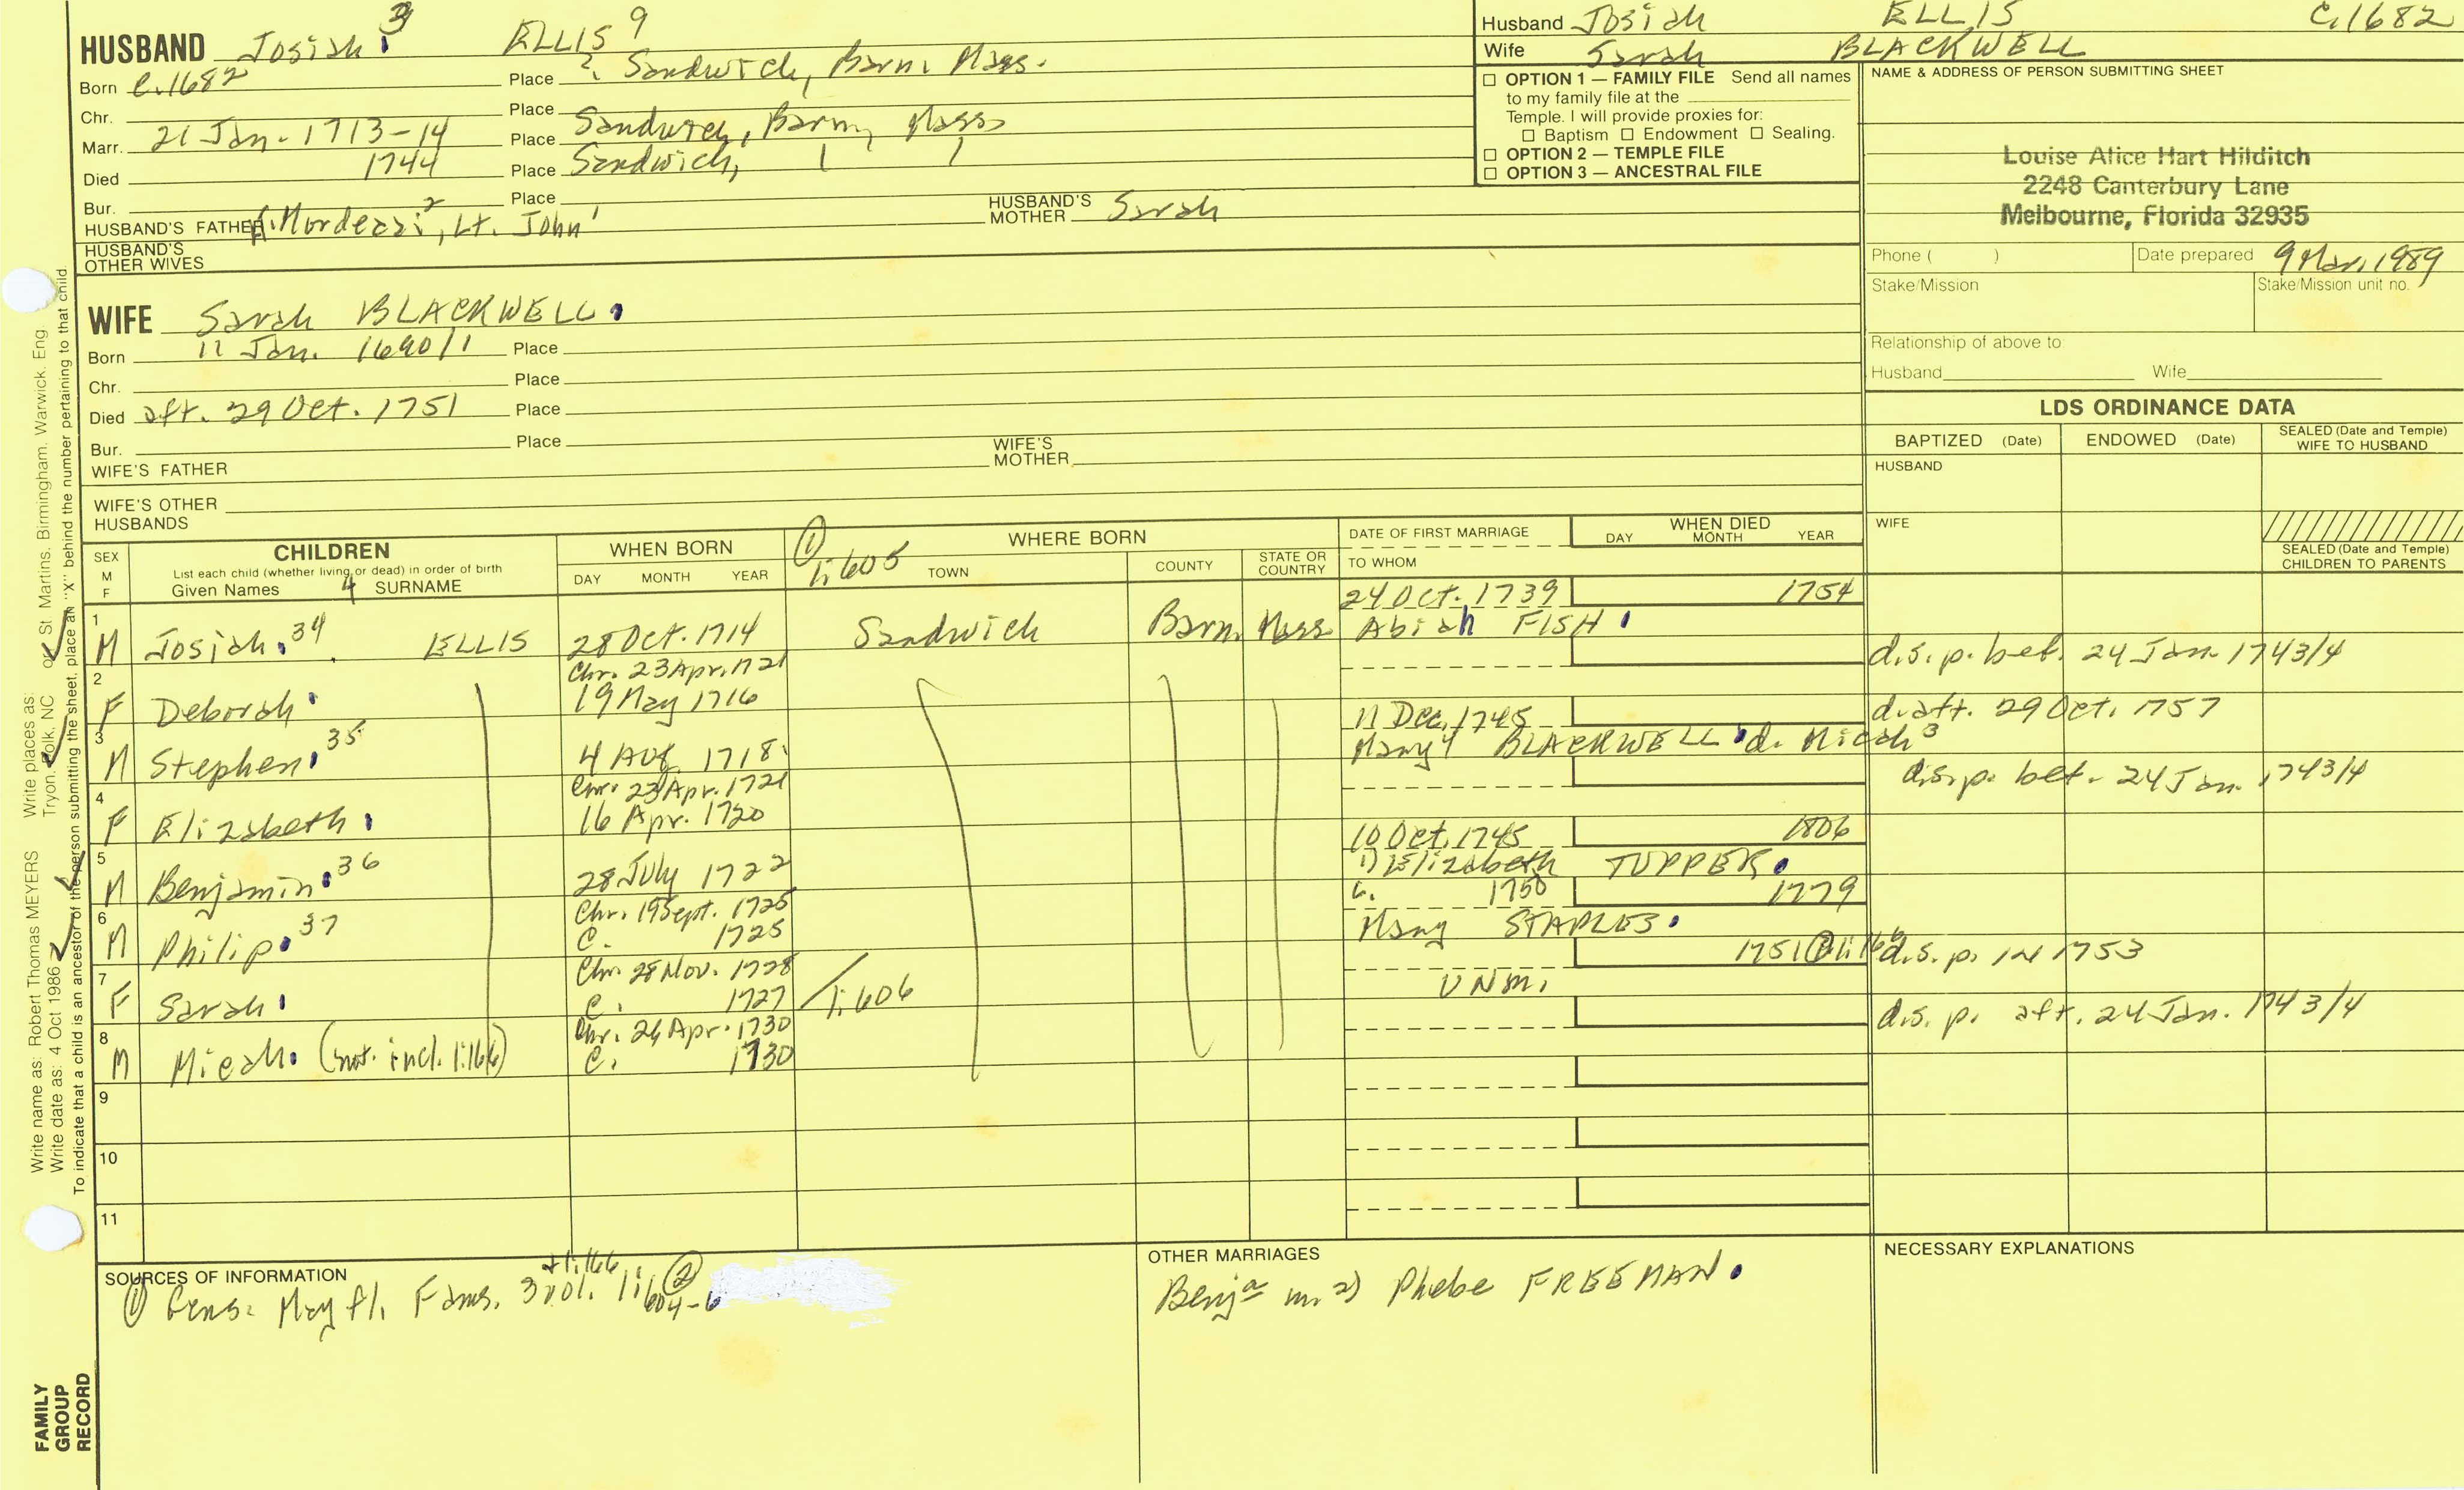 HUSBAND Josiah 3 ELLIS 9
Born c.1682 Place ? Sandwich, Barn. Mass.
Chr. Place
Marr. 21 Jan. 1713-14 Place Sandwich, Barn, Mass
Died 1744 Place Sandwich,
Bur. Place
HUSBAND'S FATHER Mordecai 2, Lt. John 1 HUSBAND'S MOTHER Sarah
HUSBAND'S OTHER WIVES
Husband Josiah ELLIS C.1682
Wife Sarah BLACKWELL
☐ OPTION 1 — FAMILY FILE Send all names
to my family file at the
Temple. I will provide proxies for:
☐ Baptism ☐ Endowment ☐ Sealing.
☐ OPTION 2 — TEMPLE FILE
☐ OPTION 3 — ANCESTRAL FILE
NAME & ADDRESS OF PERSON SUBMITTING SHEET
Louise Alice Hart Hilditch
2248 Canterbury Lane
Melbourne, Florida 32935
Phone ( ) Date prepared 9 Mar, 1989
Stake/Mission Stake/Mission unit no.
Relationship of above to:
Husband Wife
WIFE Sarah BLACKWELL
Born 11 Jan. 1690/1 Place
Chr. Place
Died aft. 29 Oct. 1751 Place
Bur. Place
WIFE'S FATHER WIFE'S MOTHER
WIFE'S OTHER HUSBANDS
LDS ORDINANCE DATA
BAPTIZED (Date) ENDOWED (Date) SEALED (Date and Temple) WIFE TO HUSBAND
HUSBAND
WIFE
SEALED (Date and Temple) CHILDREN TO PARENTS
SEX M F
CHILDREN
List each child (whether living or dead) in order of birth
Given Names 4 SURNAME
WHEN BORN
DAY MONTH YEAR
① 1:605
WHERE BORN
TOWN COUNTY STATE OR COUNTRY
DATE OF FIRST MARRIAGE
TO WHOM
WHEN DIED
DAY MONTH YEAR
24 Oct. 1739 1754
1 M Josiah. 34 ELLIS 28 Oct. 1714 Sandwich Barn. Mass Abiah FISH
Chr. 23 Apr. 1721 d.s.p. bef. 24 Jan. 1743/4
2 F Deborah 19 May 1716
11 Dec. 1745 d. aft. 29 Oct. 1757
3 M Stephen 35 4 Aug. 1718 Mary 4 BLACKWELL d. Micah 3
Chr. 23 Apr. 1721 d.s.p. bef. 24 Jan. 1743/4
4 F Elizabeth 16 Apr. 1720
10 Oct. 1745 1806
5 M Benjamin 36 28 July 1722 1) Elizabeth TUPPER.
Chr. 19 Sept. 1725 c. 1750 1779
6 M Philip 37 C. 1725 Mary STAPLES.
Chr. 28 Nov. 1728 1751 @ 1:166 d.s.p. in 1753
7 F Sarah C. 1727 1:606 UNM.
Chr. 26 Apr. 1730 d.s.p. aft. 24 Jan. 1743/4
8 M Micah. (not. incl. 1:166) C. 1730
9
10
11
SOURCES OF INFORMATION
+1:166
① Gens. Mayfl. Fams. 3 vol. 1:604-6 ②
OTHER MARRIAGES
Benja m. 2) Phebe FREEMAN.
NECESSARY EXPLANATIONS
Write name as: Robert Thomas MEYERS Write places as: Tryon, Polk, NC or St Martins. Birmingham. Warwick. Eng
Write date as: 4 Oct 1986
To indicate that a child is an ancestor of the person submitting the sheet, place an "X" behind the number pertaining to that child.
FAMILY GROUP RECORD